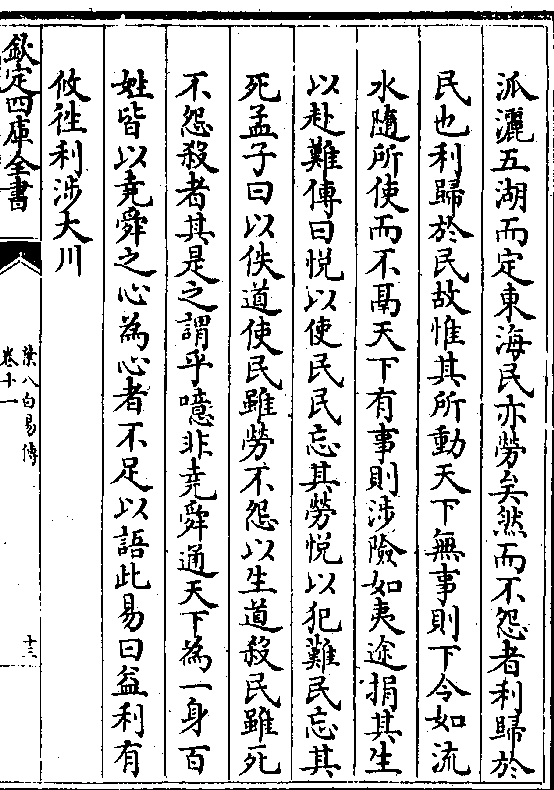 派灑五湖而定東海民亦勞矣然而不怨者利歸於
民也利歸於民故惟其所動天下無事則下令如流
水隨所使而不鬲天下有事則涉險如夷途捐其生
以赴難傳曰悅以使民民忘其勞悅以犯難民忘其
死孟子曰以佚道使民雖勞不怨以生道殺民雖死
不怨殺者其是之謂乎噫非堯舜通天下為一身百
姓皆以堯舜之心為心者不足以語此易曰益利有
攸往利涉大川
欽定四庫全書
葉八白易傳
卷十一
十三